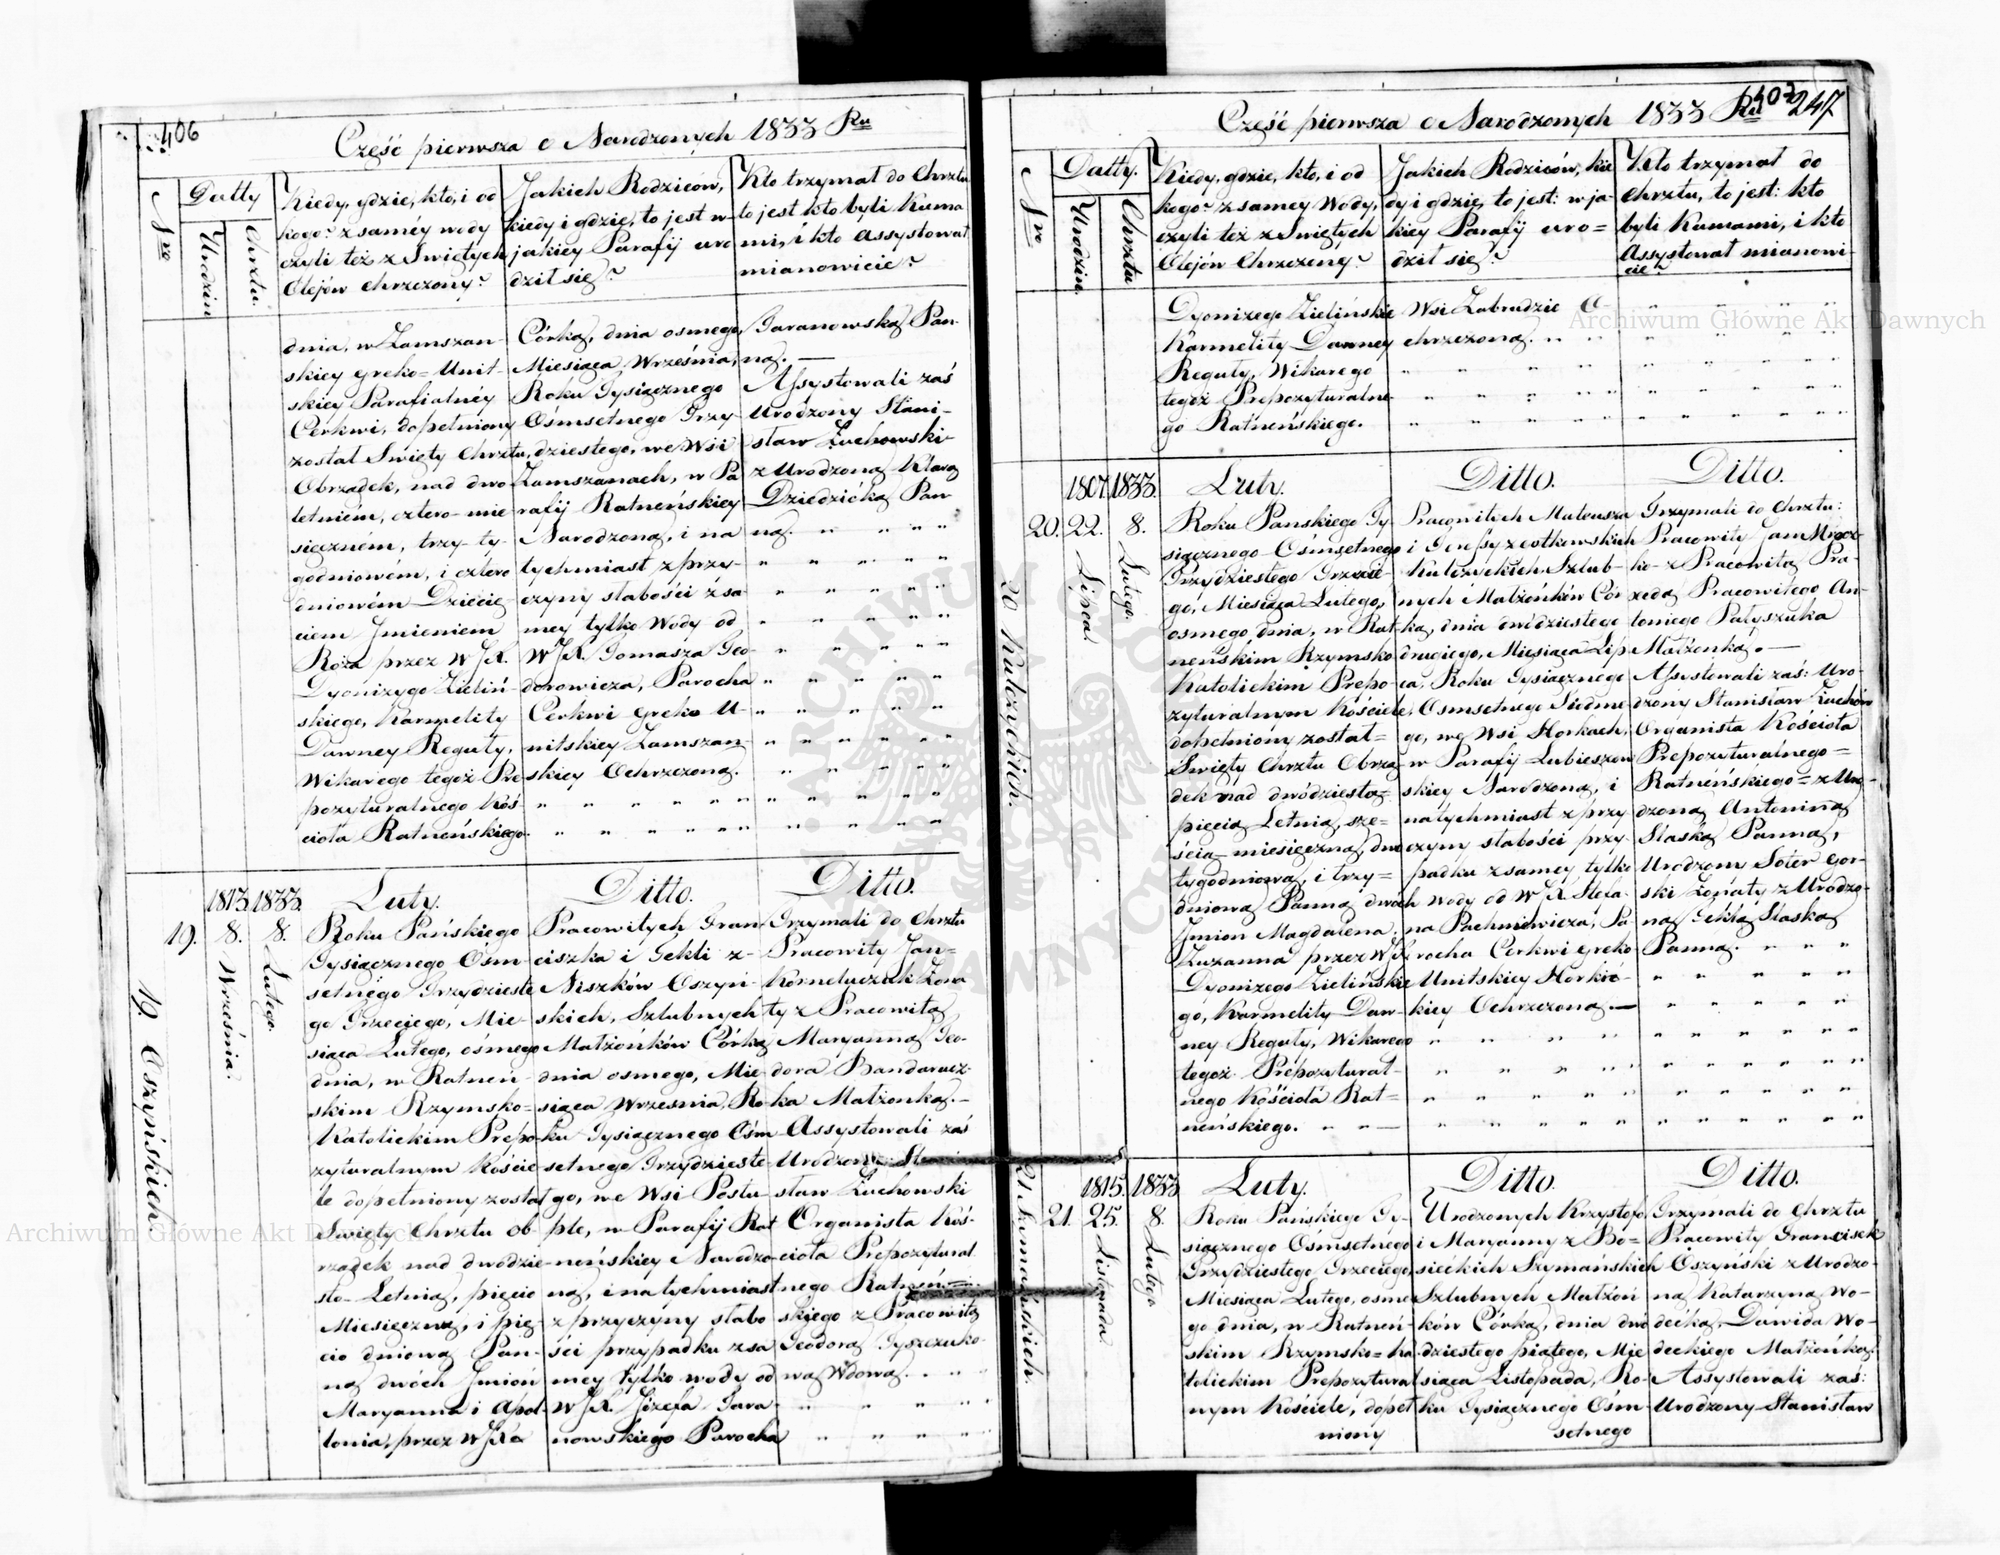 406
Część pierwsza o Narodzonych 1833 Ru
Nro
Datty
Urodzin
Chrztu.
Kiedy, gdzie, kto, i od
kogo? z saméy wody
czyli też z Swiętych
Olejów chrzczony?
Jakich Rodziców,
kiedy i gdzie, to jest w
jakiey Parafij uro
dził się?
Kto trzymał do Chrztu
to jest kto byli Kuma
mi, i kto Assystował
mianowicie?
dnia, w Zamszan-
skiey Greko=Unit-
skiey Parafialnéy
Cerkwi, dopełniony
został Swięty Chrztu,
Obrządek, nad dwo
letniém, cztero-mie
sięczném, trzy-ty-
godniowém, i cztero
dniowém Dziecię-
ciem Jmieniem
Róża przez WJX.
Dyonizygo Zieliń-
skiego, Karmelity
Dawney Reguły,
Wikarego tegoż Pre
pozyturalnego Koś-
cioła Ratneńskiego
Córka, dnia osmego,
Miesiąca, Września,
Roku Tysiącznego
Ośmsetnego Trzy-
dziestego, we Wsi
Zamszanach, w Pa
rafij Ratneńskiey
Narodzona, i na
tychmiast z przy-
czyny słabości z sa
mey tylko Wody od
WJX. Tomasza Teo-
dorowicza, Parocha
Cerkwi Greko U-
nitskiey Zamszan-
skiey Ochrzczona.
Taranowską Pan-
ną. —
Assystowali zaś
Urodzony Stani-
sław Żuchowski
z Urodzoną Klarą
Dziedzicką Pan
ną.
19 Oszyńskich.
19.
1813.
8.
Września.
1833.
8.
Lutego.
Luty.
Roku Pańskiego
Tysiącznego Ośm-
setnego Trzydzieste
go Trzeciego, Mie-
siąca Lutego, ośmego
dnia, w Ratneń-
skim Rzymsko-
Katolickim Prepo-
zyturalnym Koście
le dopełniony został
Swięty Chrztu Ob-
rządek nad dwódzie
sto-Letnią, pięcio
Miesięczną, i pię-
cio dniową Pan-
ną dwóch Jmion
Maryanna i Apol
lonia, przez WJXa
Ditto.
Pracowitych Fran
ciszka i Tekli z-
Niszków Oszyń-
skich, Szlubnych
Małżónków Córka
dnia osmego, Mie
siąca Września, Ro
ku Tysiącznego Ośm
setnego Trzydzieste
go, we Wsi Postu
ple, w Parafij Rat
neńskiey i Narodzo
na, i natychmiast
z przyczyny słabo
ści przypadku z sa
mey tylko wody od
WJX. Józefa Tara-
nowskiego Parocha
Ditto.
Trzymali do Chrztu
Pracowity Jan=
Korneluczuk Żona
ty z Pracowitą
Maryanną Teo-
dora Bandarucz-
ka Małżonką. —
Assystowali zaś
Urodzony Stani
sław Żuchowski
Organista Koś-
cioła Prepozytural
nego Ratneń=
skiego z Pracowitą
Teodorą Tyszczuko-
wą Wdową.
407
247
Część pierwsza o Narodzonych 1833 Ru
Nro
Datty.
Urodzin.
Chrztu
Kiedy, gdzie, kto, i od
kogo? z samey Wody,
czyli też z Swiętych
Olejów Chrzczony?
Jakich Rodziców, kie
dy i gdzie, to jest: w ja-
kiey Parafij uro=
dził się?
Kto trzymał do
Chrztu, to jest: kto
byli Kumami, i kto
Assystował mianowi-
cie?
Dyonizego Zielińskie
Karmelity Dawney
Reguły, Wikarego
tegoż Prepozyturalne
go Ratneńskiego.
Wsi Zabrodzie O
chrzczona.
20 Kulczyckich
20.
1807.
22.
Lipca.
1833.
8.
Lutego.
Luty.
Roku Panskiego Ty-
siącznego Ośmsetnego
Trzydziestego Trzecie-
go, Miesiąca Lutego,
osmego dnia, w Rat-
neńskim Rzymsko
Katolickim Prepo-
zyturalnym Kościele,
dopełniony został=
Swięty Chrztu Obrzą
dek nad dwódziesto=
pięcią Letnią, sze=
ścio-miesięczną, dwu
tygodniową, i trzy=
dniową Panną dwóch
Jmion Magdalena:
Zuzanna przez WJX
Dyonizego Zielińskie
go, Karmelity Daw-
ney Reguły, Wikarego
tegoż Prepozytural-
nego Kościoła Rat=
neńskiego.
Ditto.
Pracowitych Mateusza
i Teressy z Wotkowskich
Kulczyckich, Szlub-
nych Małżónków Cór
ka, dnia dwódziestego
drugiego, Miesiąca Lip
ca, Roku Tysiącznego
Osmsetnego Siódme
go, we Wsi Horkach,
w Parafij Lubieszow
skiey Narodzona, i
natychmiast z przy
czyny słabości przy-
padku z samey tylko
wody od WJX. Stefa-
na Pachniewicza, Pa
rocha Cerkwi Greko
Unitskiey Horkie-
kiey Ochrzczona. —
Ditto.
Trzymali do Chrztu:
Pracowity Jan Mrocz-
ko-z Pracowitą Pra-
xedą Pracowitego An-
toniego Patyszuka
Małżonką. —
Assystowali zaś: Uro-
dzony Stanisław Żuchow
Organista Kościoła
Prepozyturalnego=
Ratneńskiego=z Uro-
dzoną Antoniną
Slaską Panną,
Urodzony Soter Gor-
ski Żonaty z Urodzo-
ną Teklą Slaską
Panną.
21. Szymańskich.
21.
1815.
25.
Listopada
1833
8.
Lutego
Luty.
Roku Pańskiego Ty-
siącznego Ośmsetnego
Trzydziestego Trzeciego,
Miesiąca Lutego, osme
go dnia, w Ratneń-
skim Rzymsko=Ka
tolickim Prepozytural
nym Kościele, dopeł
niony
Ditto.
Urodzonych Krzysztofa
i Maryanny z Bo=
sieckich Szymańskich
Szlubnych Małżón
ków Córka, dnia dwó
dziestego piątego, Mie
siąca Listopada, Ro-
ku Tysiącznego Ośm
setnego
Ditto.
Trzymali do Chrztu
Pracowity Franciszek
Oszyński z Urodzo-
ną Katarzyną Wo-
decką, Dawida Wo-
deckiego Małżónką
Assystowali zaś:
Urodzony Stanisław
Archiwum Główne Akt Dawnych
Archiwum Główne Akt Dawnych